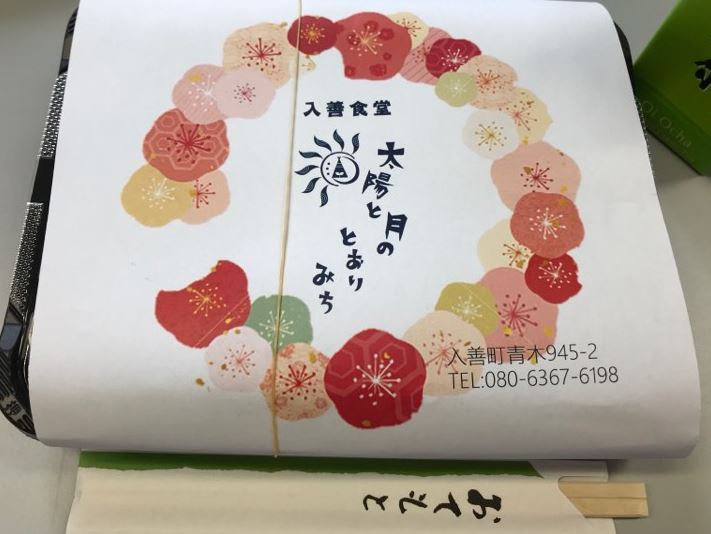 入善食堂
太陽と月の
とおりみち
入善町青木945-2
TEL:080-6367-6198
おてもと
Oi Ocha